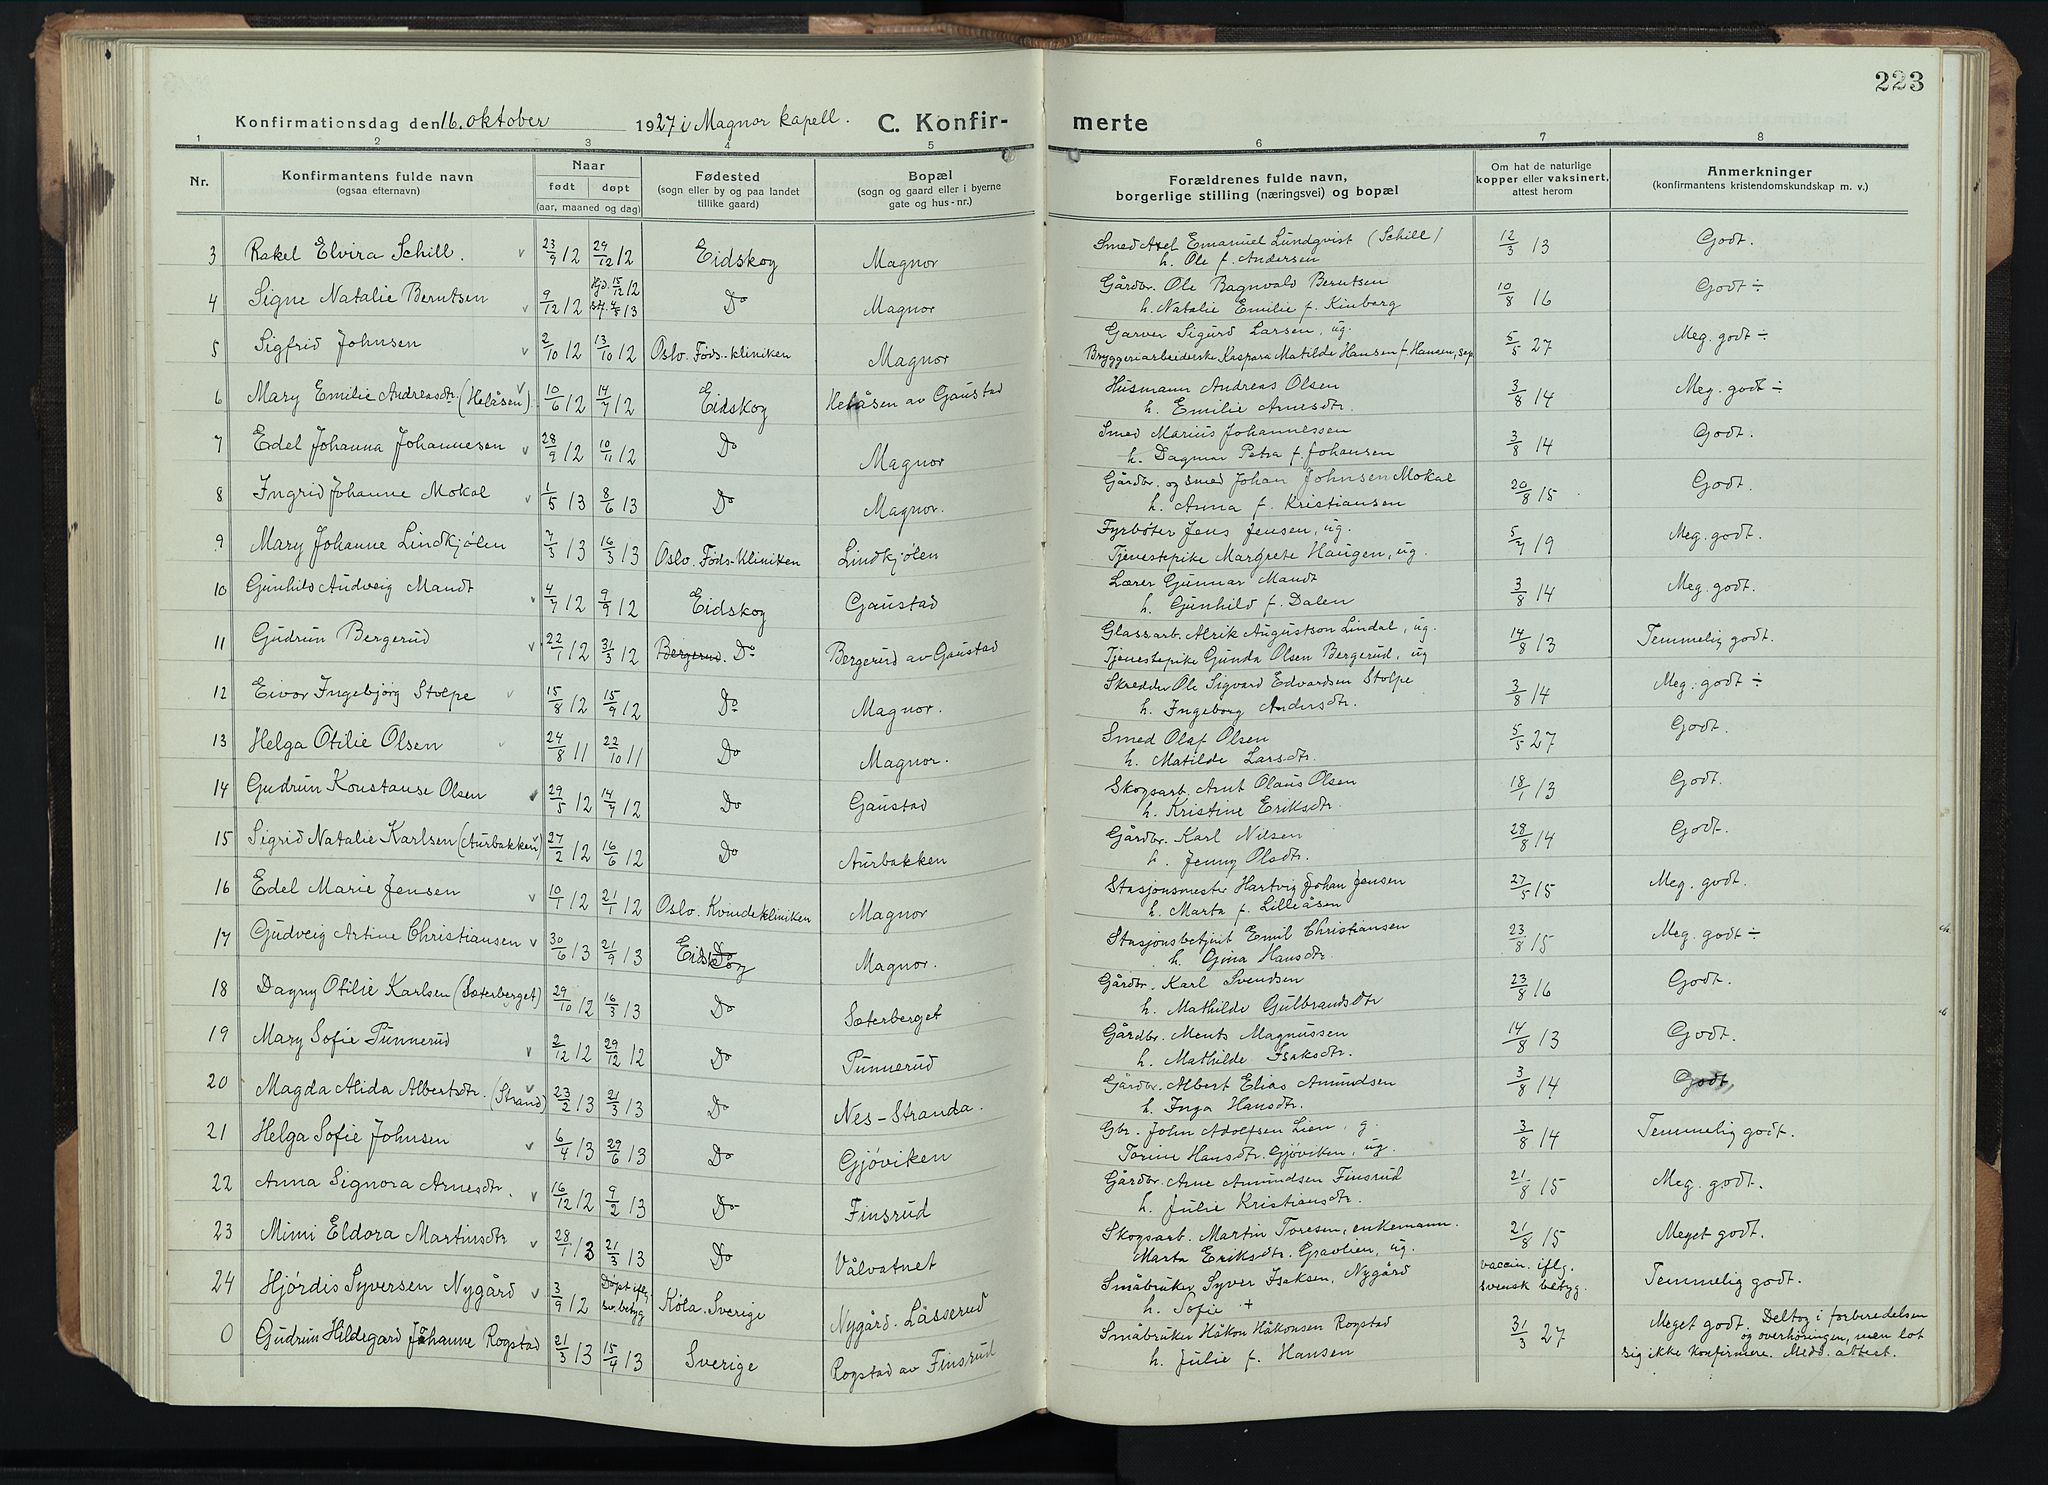 223
Konfirmationsdag den 16. oktober 1927 i Magnor kapell. C. Konfirmerte
1 2 3 4 5 6 7 8
Nr. Konfirmantens fulde navn (ogsaa efternavn) Naar født døpt (aar, maaned og dag) Fødested (sogn eller by og paa landet tillike gaard) Bopæl (sogn og gaard eller i byerne gate og hus-nr.) Forældrenes fulde navn, borgerlige stilling (næringsvei) og bopæl Om hat de naturlige kopper eller vaksinert, attest herom Anmerkninger (konfirmantens kristendomskundskap m. v.)
3 Rakel Elvira Schill. 23/9 12 29/12 12 Eidskog Magnor Smed Axel Emanuel Lundqvist (Schill) 12/3 13 Godt.
h. Ole f. Andersen
4 Signe Natalie Berntsen 9/12 12 Hjd. 15/12 12 Do Magnor Gårdbr. Ole Ragnvald Berntsen 10/8 16 Godt ÷
h. Natalie Emilie f. Kinberg
5 Sigfrid Johnsen 2/10 12 13/10 12 Oslo. Føds.-kliniken Magnor Garver Sigurd Larsen, ug. 5/5 27 Meg. godt ÷
Bryggeriarbeiderske Kaspara Matilde Hansen f. Hansen, sep.
6 Mary Emilie Andreasdtr. (Helåsen) 10/6 12 14/7 12 Eidskog Helåsen av Gaustad Husmann Andreas Olsen 3/8 14 Meg. godt ÷
h. Emilie Arnesdtr.
7 Edel Johanna Johannesen 28/9 12 10/11 12 Do Magnor Smed Marius Johannessen 3/8 14 Godt.
h. Dagmar Petra f. Johansen
8 Ingrid Johanne Mokal 1/5 13 8/6 13 Do Magnor. Gårdbr. og smed Johan Johnsen Mokal 20/8 15 Godt.
h. Anna f. Kristiansen
9 Mary Johanne Lindkjølen 7/3 13 16/3 13 Oslo. Føds-Kliniken Lindkjølen Fyrbøter Jens Jensen, ug. 5/7 19 Meg. godt.
Tjenestepike Margrete Haugen, ug.
10 Gunhild Audveig Mandt 4/7 12 9/9 12 Eidskog Gaustad Lærer Gunnar Mandt 3/8 14 Meg. godt.
h. Gunhild f. Dalen
11 Gudrun Bergerud 22/1 12 31/3 12 Bergerud. Do Bergerud av Gaustad Glassarb. Alrik Augustson Lindal, ug. 14/8 13 Temmelig godt.
Tjenestepike Gunda Olsen Bergerud, ug
12 Eivor Ingebjørg Stolpe 15/8 12 15/9 12 Do Magnor. Skredder Ole Sigvard Edvardsen Stolpe 3/8 14 Meg. godt ÷
h. Ingeborg Andersdtr.
13 Helga Otilie Olsen 24/8 11 22/10 11 Do Magnor. Smed Olaf Olsen 5/5 27 Godt.
h. Matilde Larsdtr.
14 Gudrun Konstanse Olsen 29/5 12 14/7 12 Do Gaustad Skogsarb. Arnt Olaus Olsen 18/1 13 Godt.
h. Kristine Eriksdtr.
15 Sigrid Natalie Karlsen (Aurbakken) 27/2 12 16/6 12 Do Aurbakken Gårdbr. Karl Nilsen 28/8 14 Godt.
h. Jenny Olsdtr.
16 Edel Marie Jensen 10/1 12 21/1 12 Oslo. Kvindekliniken Magnor Stasjonsmester Hartvig Johan Jensen 27/5 15 Meg. godt.
h. Marta f. Lilleåsen
17 Gudveig Artine Christiansen 30/6 13 21/9 13 Eidskog Magnor. Stasjonsbetjent Emil Christiansen 23/8 15 Meg. godt ÷
h. Gina Hansdtr.
18 Dagny Otilie Karlsen (Sæterberget) 29/10 12 16/3 13 Do Sæterberget Gårdbr. Karl Svendsen 23/8 16 Godt.
h. Mathilde Gulbrandsdtr
19 Mary Sofie Punnerud 2/12 12 29/12 12 Do Punnerud Gårdbr. Ments Magnussen 14/8 13 Godt.
h. Mathilde Isaksdtr.
20 Magda Alida Albertsdtr. (Strand) 23/2 13 21/3 13 Do Nes-Stranda. Gårdbr. Albert Elias Amundsen 3/8 14 Godt
h. Inga Hansdtr.
21 Helga Sofie Johnsen 6/4 13 29/6 13 Do Gjøviken Gbr. John Adolfsen Lien, g. 3/8 14 Temmelig godt.
Torine Hansdtr. Gjøviken, ug.
22 Anna Signora Arnesdtr. 16/12 12 9/2 13 Do Finsrud Gårdbr. Arne Amundsen Finsrud 21/8 15 Meg. godt.
h. Julie Kristiansdtr.
23 Mimi Eldora Martinsdtr 28/1 13 21/3 13 Do Vålvatnet Skogsarb. Martin Toresen, enkemann. 21/8 15 Meget godt.
Marta Eriksdtr. Gravlien, ug.
24 Hjørdis Syversen Nygård 3/9 12 Døpt iflg. sv. betyg Køla. Sverige Nygård. Låsserud Småbruker Syver Isaksen, Nygård vaccin. iflg. svensk betyg. Temmelig godt.
h. Sofie +
0 Gudrun Hildegard Johanne Rogstad 21/3 13 15/4 13 Sverige Rogstad av Finsrud Småbruker Håkon Håkonsen Rogstad 31/3 27 Meget godt. Deltog i forberedelsen
h. Julie f. Hansen og overhøringen, men lot
sig ikke konfirmere. Medd. attest.